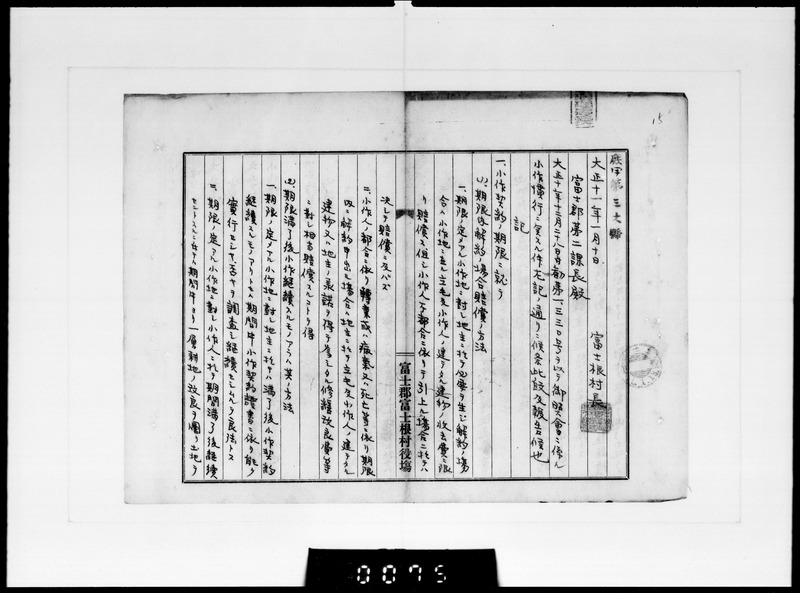 15
庶甲第三七號
大正十一年一月十日
富士根村長
富士郡第二課長殿
大正十年十二月二十八日勸第一三三〇号ヲ以テ御照會ニ係ル
小作慣行ニ関スル件左記ノ通リニ候条此段及報告候也
記
一、小作契約ノ期限ニ就テ
(1)、期限內解約ノ場合賠償ノ方法
一、期限ノ定メアル小作地ニ対シ地主ニ於テ必要ヲ生ジ解約ノ場
合ハ小作地ニ在ル立毛及小作人ノ建テタル建物ノ收去費ニ限
リ賠償ス但シ小作人ノ都合ニ依リテ引上ル場合ニ於テハ
富士郡富士根村役場
決シテ賠償ニ及バズ
二、小作人ノ都合ニ依リ轉業或ハ癈業又ハ死亡等ニ依リ期限
內ニ解約申出ル場合ハ地主ニ於テ立毛及小作人ノ建テタル
建物又ハ地主ノ承諾ヲ得テ為シタル修繕改良費等
ニ對シ相当賠償スルコトヲ得
(2)、期限満了後小作継續スルモノアラハ其ノ方法
一、期限ノ定メアル小作地ニ對シ地主ニ於テハ満了後小作契約
継續スルモノアリトキハ期間中小作契約證書ニ依リ能ク
實行セシヤ否ヤヲ調査シ継續セシムルヲ良法トス
二、期限ノ定アル小作地ニ對シ小作人ニ於テ期間満了後継續
セントスルニ於テハ期間中ヨリ一層耕地ノ改良ヲ圖リ土地ヲ
0075